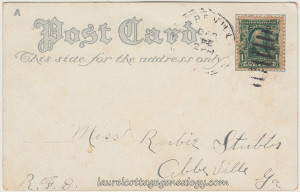 A
Post Card
This side for the address only.
Miss Rubie Stubbs
Abbeville
R. F. D.
Ga
laurelcottagegenealogy.com